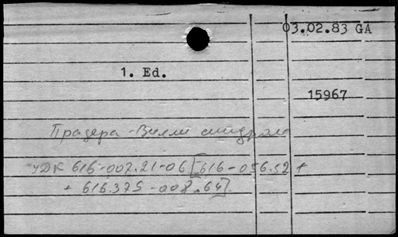 03.02.83 GA
1. Ed.
15967
Прадера-Вилли синдром
УДК 616-007.21-06[616-056.52+
+ 616.375-008.64].